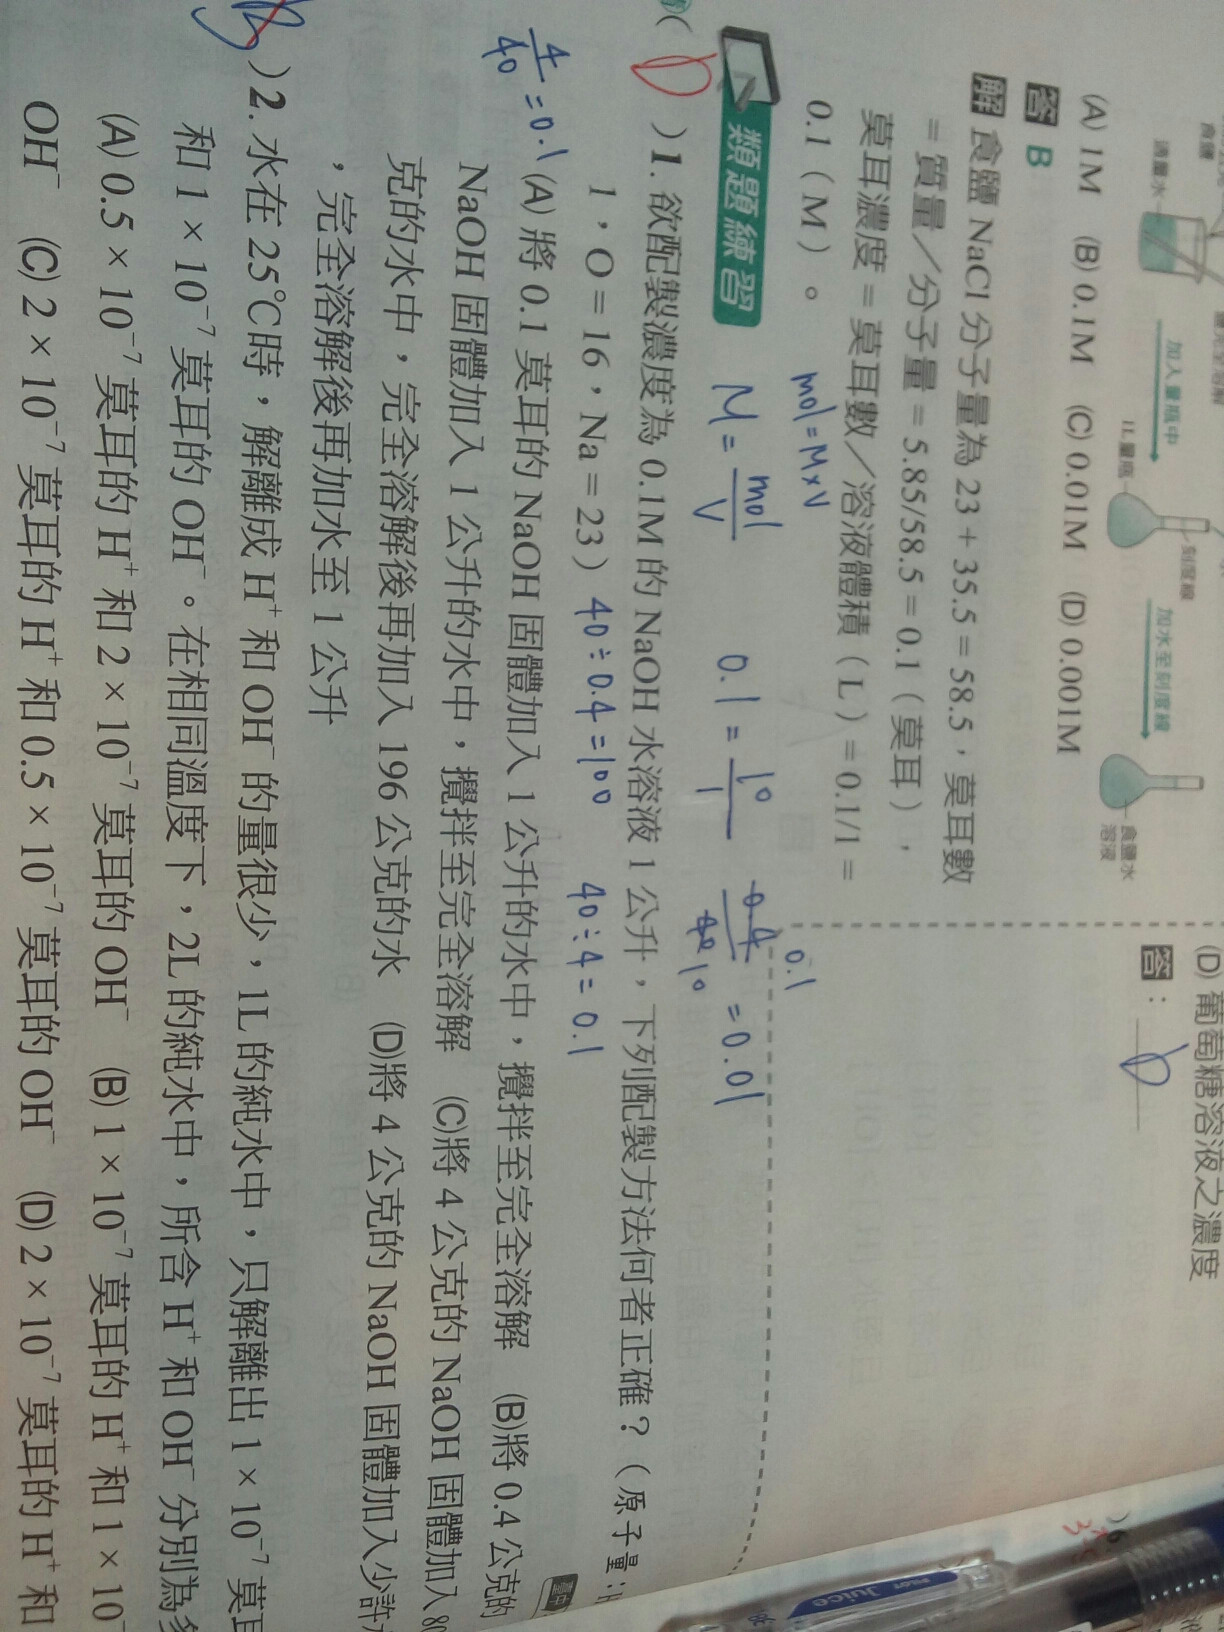 食鹽
適量水
加入量瓶中
1L量瓶
刻度線
加水至刻度線
食鹽水
溶液
(A) 1M (B) 0.1M (C) 0.01M (D) 0.001M
答 B
解 食鹽 NaCl 分子量為 23 + 35.5 = 58.5，莫耳數
= 質量／分子量 = 5.85/58.5 = 0.1（莫耳），
莫耳濃度 = 莫耳數／溶液體積（L）= 0.1/1 =
0.1（M）。
(D) 葡萄糖溶液之濃度
答： D
mol = M×V
類題練習
M = mol/V
0.1 = 10/1
0.1
0.4/40 10 = 0.01
( D ) 1. 欲配製濃度為 0.1M 的 NaOH 水溶液 1 公升，下列配製方法何者正確？（原子量：H
1，O = 16，Na = 23） 40÷0.4=100 40÷4=0.1
4/40 = 0.1
(A) 將 0.1 莫耳的 NaOH 固體加入 1 公升的水中，攪拌至完全溶解 (B)將 0.4 公克的
NaOH 固體加入 1 公升的水中，攪拌至完全溶解 (C)將 4 公克的 NaOH 固體加入
克的水中，完全溶解後再加入 196 公克的水 (D)將 4 公克的 NaOH 固體加入少許
，完全溶解後再加水至 1 公升
) 2. 水在 25℃時，解離成 H⁺ 和 OH⁻ 的量很少，1L 的純水中，只解離出 1 × 10⁻⁷ 莫耳
和 1 × 10⁻⁷ 莫耳的 OH⁻。在相同溫度下，2L 的純水中，所含 H⁺ 和 OH⁻ 分別為
(A) 0.5 × 10⁻⁷ 莫耳的 H⁺ 和 2 × 10⁻⁷ 莫耳的 OH⁻ (B) 1 × 10⁻⁷ 莫耳的 H⁺ 和 1 × 10⁻
OH⁻ (C) 2 × 10⁻⁷ 莫耳的 H⁺ 和 0.5 × 10⁻⁷ 莫耳的 OH⁻ (D) 2 × 10⁻⁷ 莫耳的 H⁺ 和
PILOT Juice